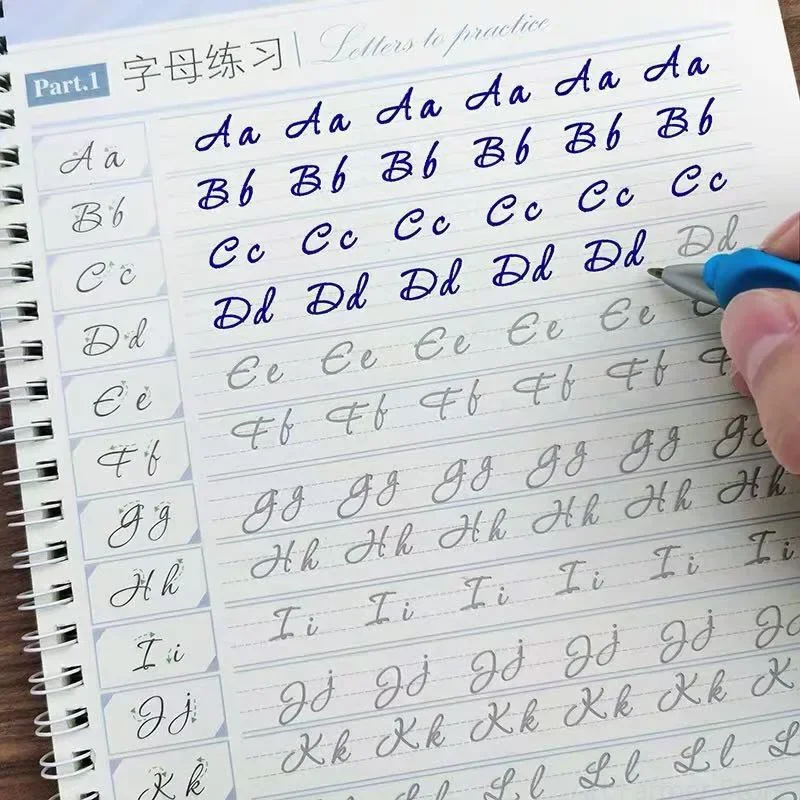 Part.1 字母练习 Letters to practice
Aa Aa Aa Aa Aa Aa Aa
Bb Bb Bb Bb Bb Bb Bb
Cc Cc Cc Cc Cc Cc Cc
Dd Dd Dd Dd Dd Dd Dd
Ee Ee Ee Ee Ee Ee
Ff Ff Ff Ff Ff Ff
Gg Gg Gg Gg Gg Gg Gg
Hh Hh Hh Hh Hh Hh Hh
Ii Ii Ii Ii Ii Ii Ii
Jj Jj Jj Jj Jj Jj Jj
Kk Kk Kk Kk Kk Kk K
Ll Ll Ll Ll Ll L